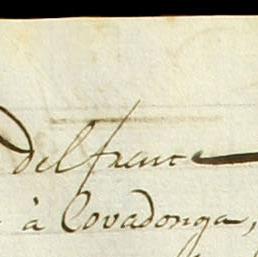 delfrance
à Covadonga,